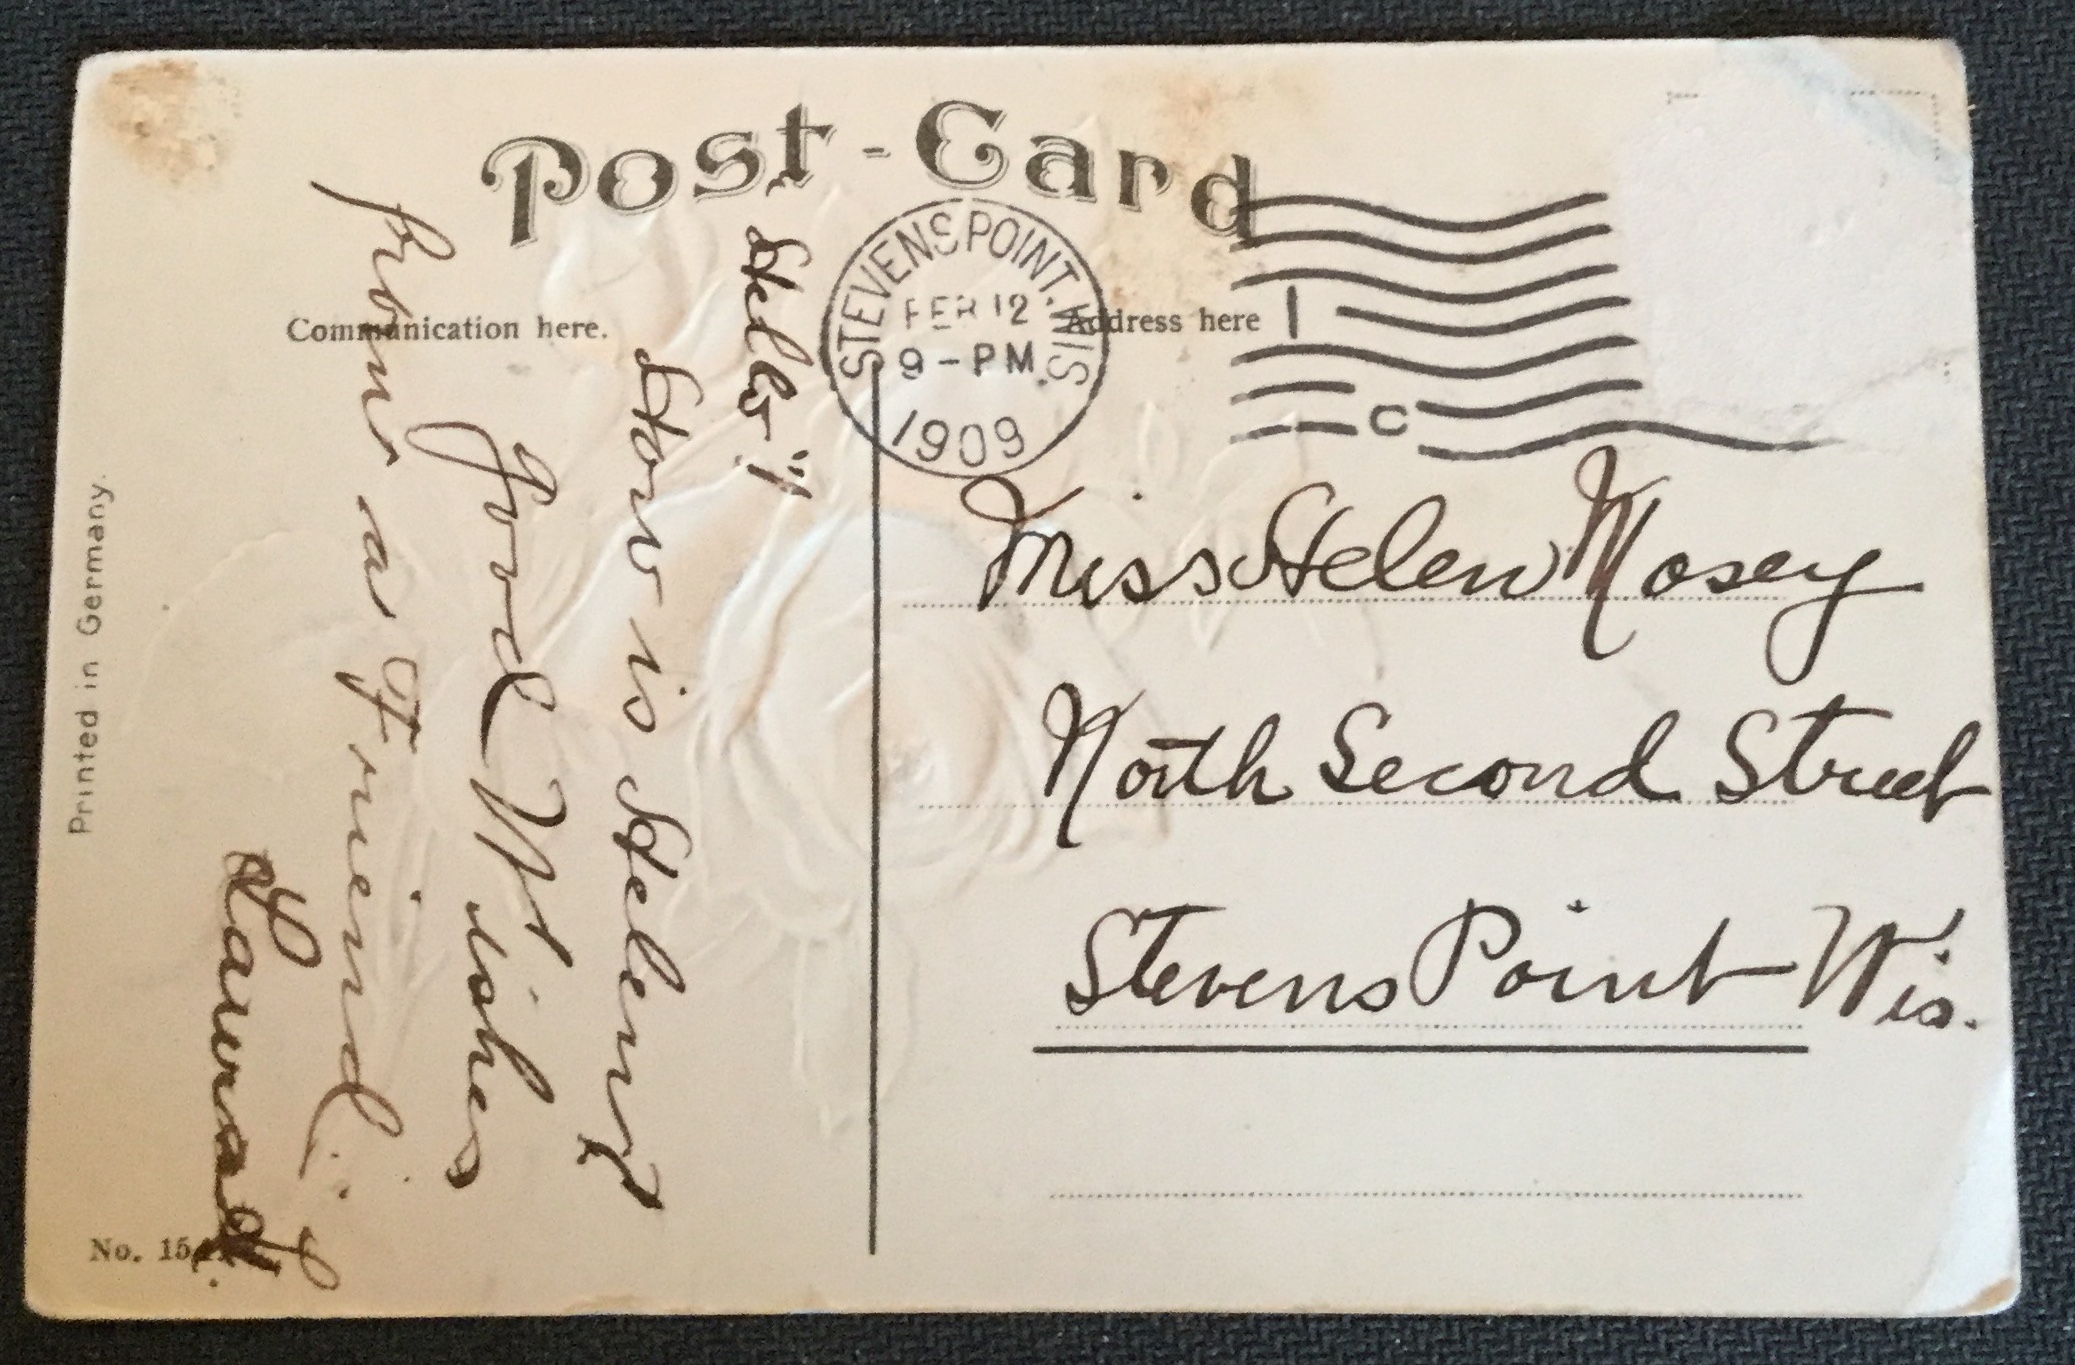 Post-Card
Communication here.
Address here
STEVENS POINT. WIS.
FEB 12
9-PM
1909
1
C
Hello"!
How is Helen?
Good Wishes
from a Friend
Miss Helen Mosey
North Second Street
Stevens Point Wis.
Printed in Germany.
No. 15